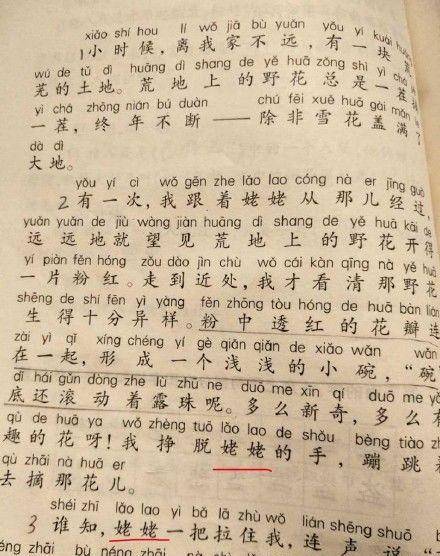 xiǎo shí hou lí wǒ jiā bù yuǎn yǒu yí kuài huāng
1小时候，离我家不远，有一块荒
wú de tǔ dì huāng dì shang de yě huā zǒng shì yì chá
芜的土地。荒地上的野花总是一茬
yì chá zhōng nián bú duàn chú fēi xuě huā gài mǎn
一茬，终年不断——除非雪花盖满了
dà dì
大地。
yǒu yí cì wǒ gēn zhe lǎo lao cóng nà er jīng guò
2有一次，我跟着姥姥从那儿经过，
yuǎn yuǎn de jiù wàng jiàn huāng dì shang de yě huā kāi de
远远地就望见荒地上的野花开得
yí piàn fěn hóng zǒu dào jìn chù wǒ cái kàn qīng nà yě huā
一片粉红。走到近处，我才看清那野花
shēng de shí fēn yì yàng fěn zhōng tòu hóng de huā bàn lián
生得十分异样。粉中透红的花瓣连
zài yì qǐ xíng chéng yí gè qiǎn qiǎn de xiǎo wǎn wǎn
在一起，形成一个浅浅的小碗，“碗
dǐ hái gǔn dòng zhe lù zhū ne duō me xīn qí duō me yǒu
底还滚动着露珠呢。多么新奇，多么有
qù de huā ya wǒ zhèng tuō lǎo lao de shǒu bèng tiào zhe
趣的花呀！我挣脱姥姥的手，蹦跳着
qù zhāi nà huā er
去摘那花儿。
shéi zhī lǎo lao yì bǎ lā zhù wǒ lián shēng shuō
3谁知，姥姥一把拉住我，连声说